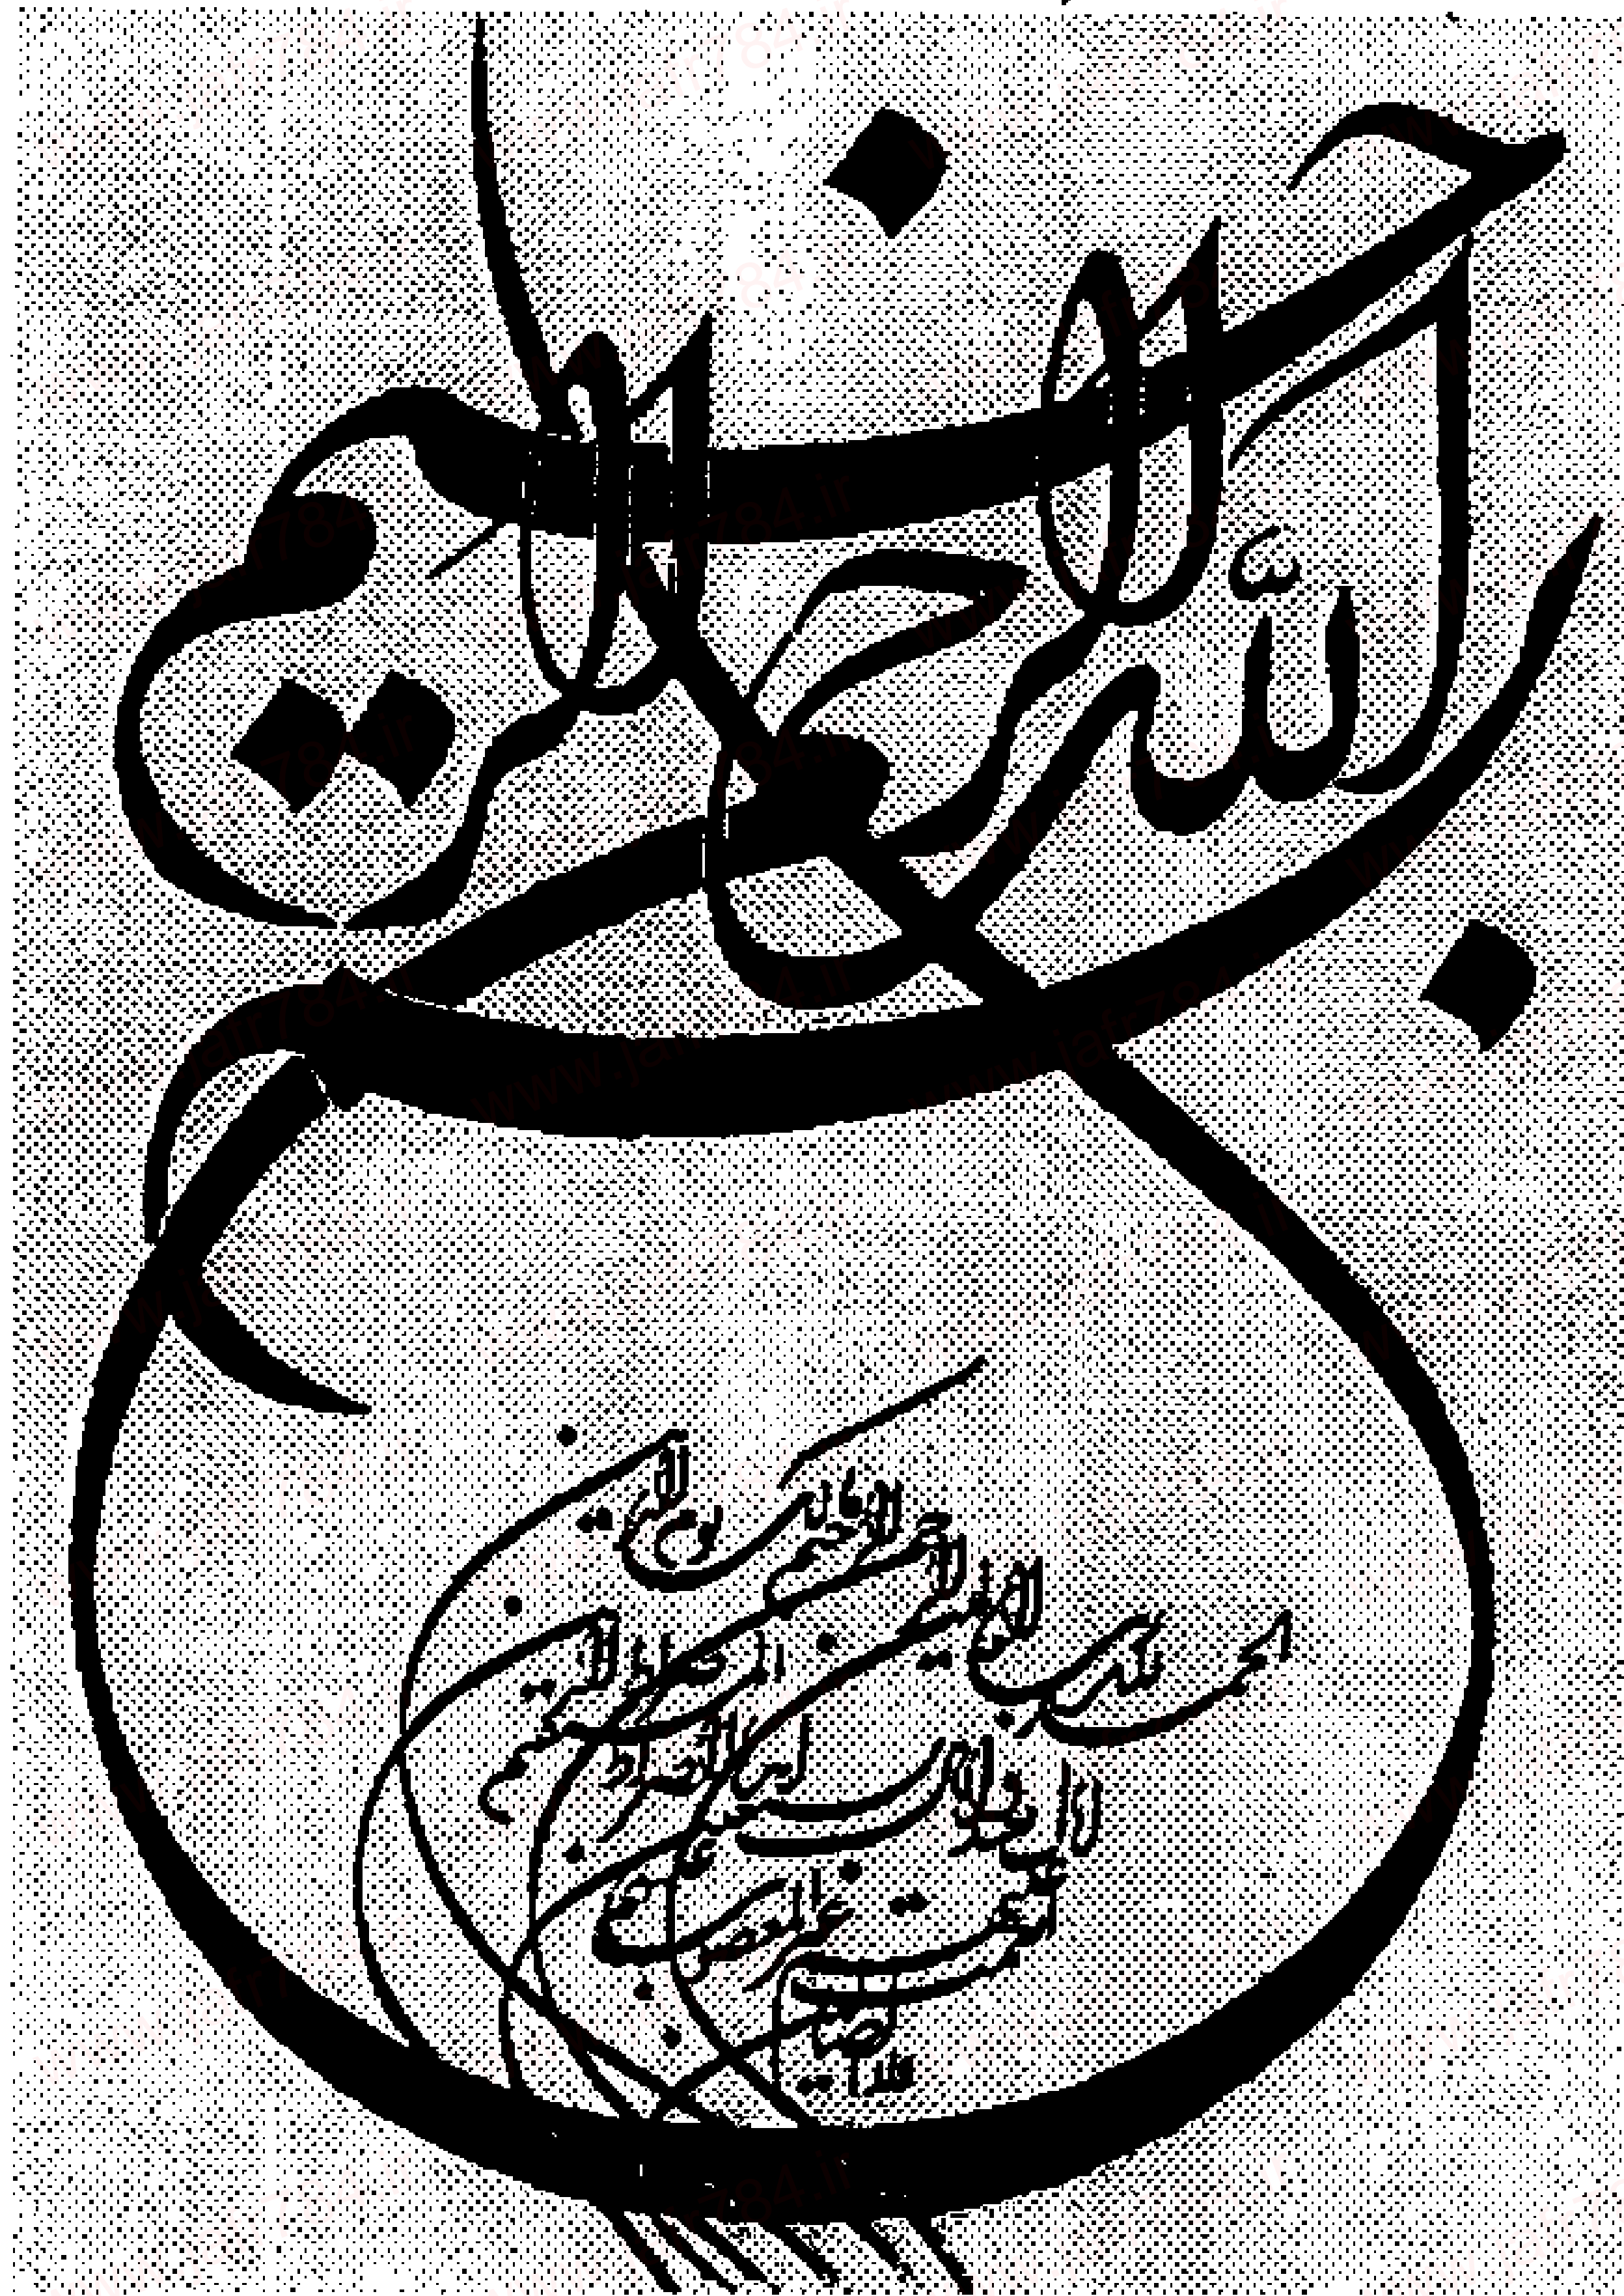 بسم الله الرحمن الرحیم
الحمد لله رب العالمین
الرحمن الرحیم
مالک یوم الدین
ایاک نعبد و ایاک نستعین
اهدنا الصراط المستقیم
صراط الذین انعمت علیهم
غیر المغضوب علیهم
ولا الضالین
www.jafr784.ir